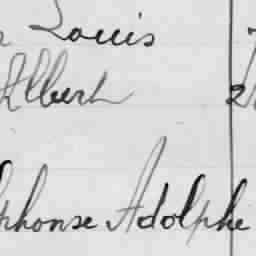 Louis
Albert
Alphonse Adolphe